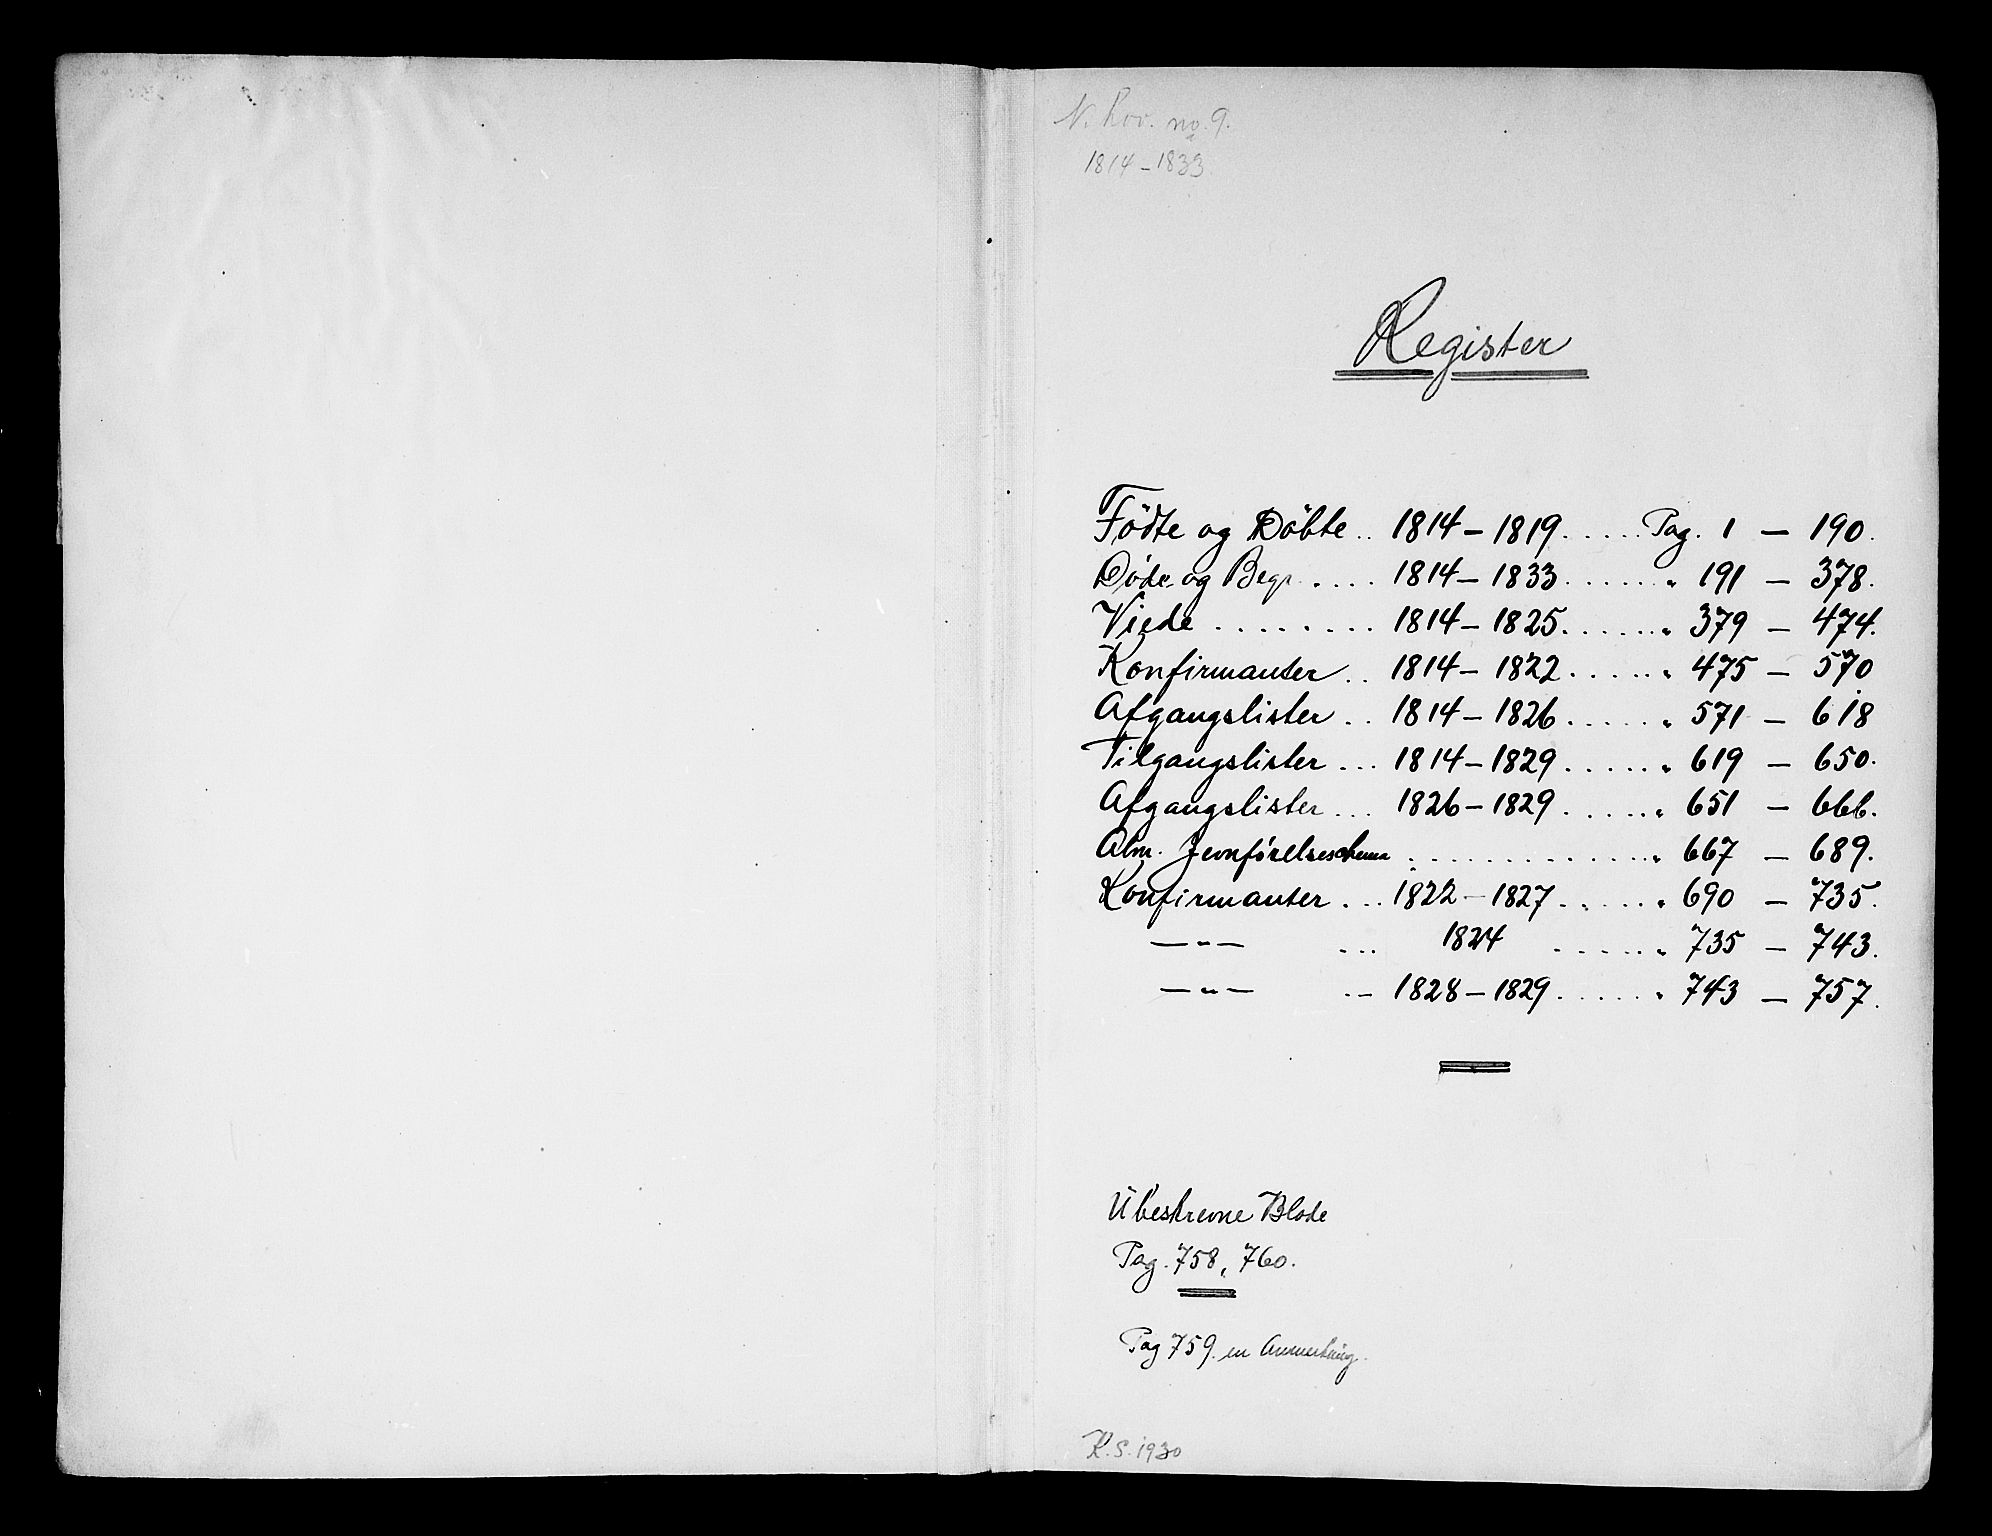 N. Hov. no. 9.
1814 - 1833
Register
Födte og Döbte .. 1814 - 1819 ..... Pag. 1 - 190.
Döde og Begr. .... 1814 - 1833 ...... " 191 - 378.
Viede ........ 1814 - 1825 ...... " 379 - 474.
Konfirmanter .. 1814 - 1822 ..... " 475 - 570
Afgangslister .. 1814 - 1826 ..... " 571 - 618
Tilgangslister ... 1814 - 1829 ..... " 619 - 650.
Afgangslister ... 1826 - 1829 ..... " 651 - 666.
Alm. Jevnførelseschema ............. " 667 - 689.
Konfirmanter ... 1822 - 1827 ..... " 690 - 735.
— " — ... 1824 ..... " 735 - 743.
— " — .. 1828 - 1829 ...... " 743 - 757.
Ubeskrevne Blade
Pag. 758, 760.
Pag 759. en Anmerkning.
K. S. 1930